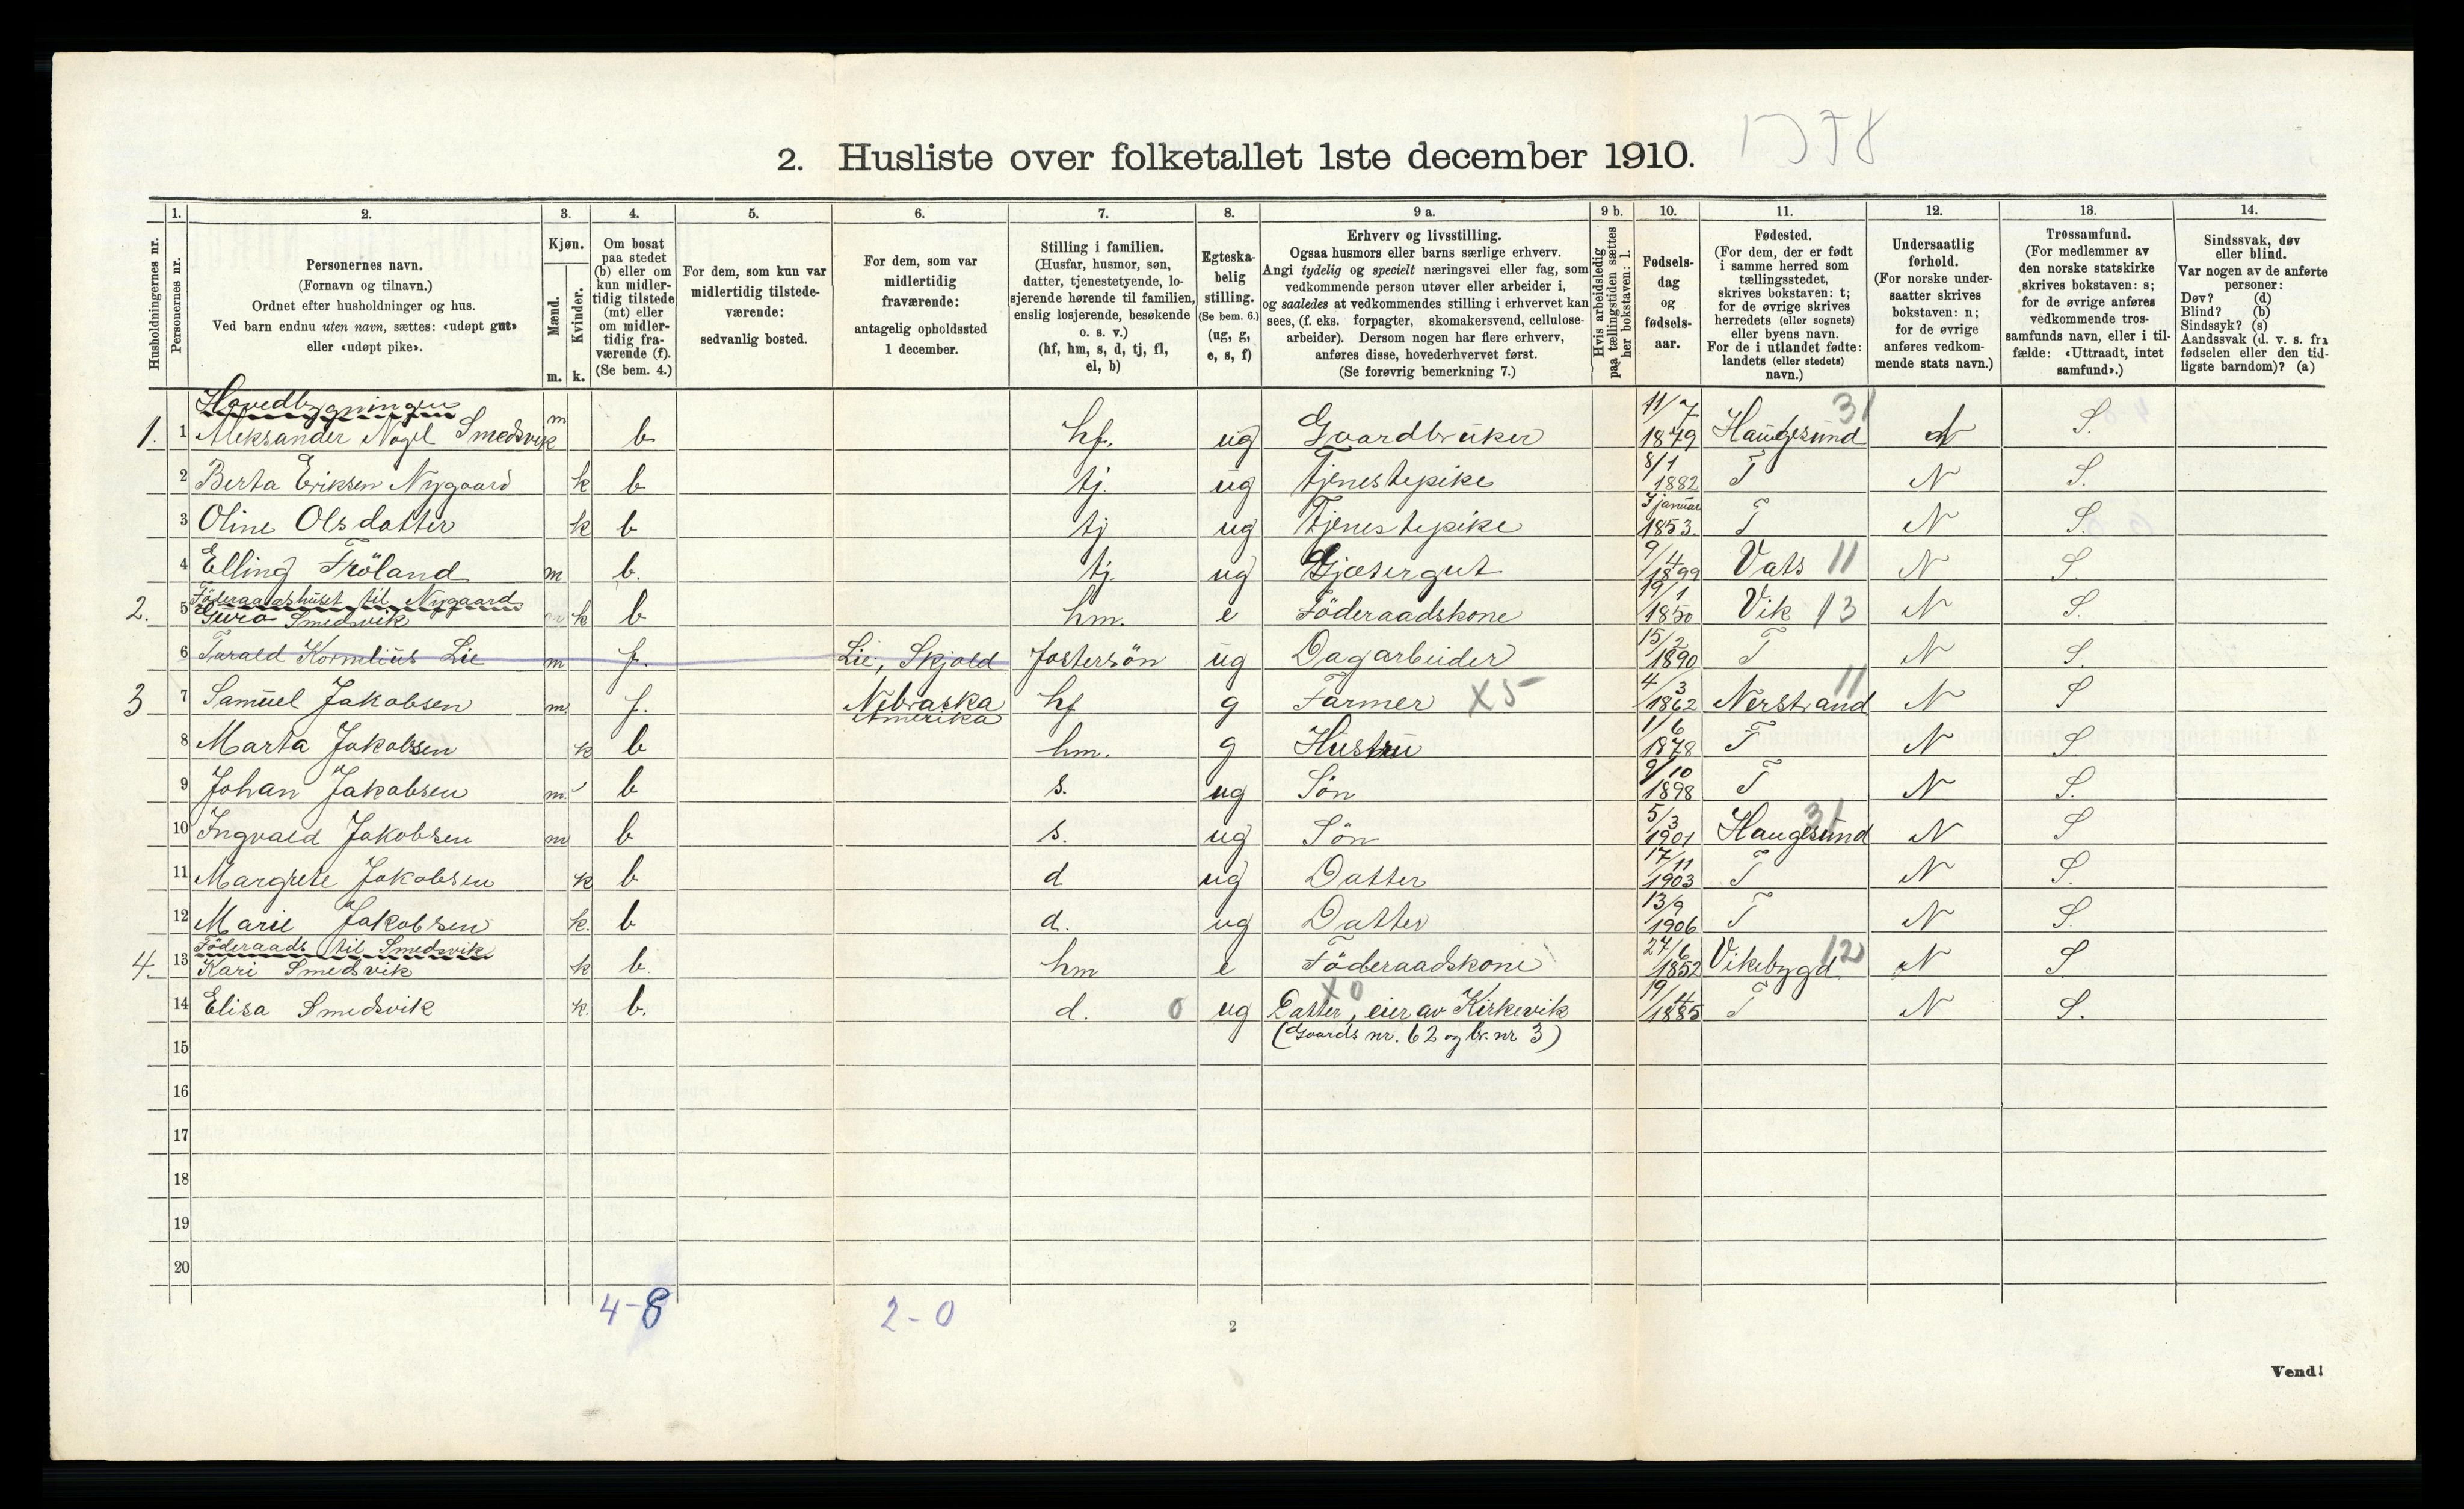 1378
2. Husliste over folketallet 1ste december 1910.
Husholdningernes nr.
1. Personernes nr.
2. Personernes navn. (Fornavn og tilnavn.) Ordnet efter husholdninger og hus. Ved barn endnu uten navn, sættes: «udøpt gut» eller «udøpt pike».
3. Kjøn. Mænd. m. Kvinder. k.
4. Om bosat paa stedet (b) eller om kun midlertidig tilstede (mt) eller om midlertidig fraværende (f). (Se bem. 4.)
5. For dem, som kun var midlertidig tilstedeværende: sedvanlig bosted.
6. For dem, som var midlertidig fraværende: antagelig opholdssted 1 december.
7. Stilling i familien. (Husfar, husmor, søn, datter, tjenestetyende, losjerende hørende til familien, enslig losjerende, besøkende o. s. v.) (hf, hm, s, d, tj, fl, el, b)
8. Egteskabelig stilling. (Se bem. 6.) (ug, g, e, s, f)
9 a. Erhverv og livsstilling. Ogsaa husmors eller barns særlige erhverv. Angi tydelig og specielt næringsvei eller fag, som vedkommende person utøver eller arbeider i, og saaledes at vedkommendes stilling i erhvervet kan sees, (f. eks. forpagter, skomakersvend, cellulosearbeider). Dersom nogen har flere erhverv, anføres disse, hovederhvervet først. (Se forøvrig bemerkning 7.)
9 b. Hvis arbeidsledig paa tællingstiden sættes her bokstaven: l.
10. Fødselsdag og fødselsaar.
11. Fødested. (For dem, der er født i samme herred som tællingsstedet, skrives bokstaven: t; for de øvrige skrives herredets (eller sognets) eller byens navn. For de i utlandet fødte: landets (eller stedets) navn.)
12. Undersaatlig forhold. (For norske undersaatter skrives bokstaven: n; for de øvrige anføres vedkommende stats navn.)
13. Trossamfund. (For medlemmer av den norske statskirke skrives bokstaven: s; for de øvrige anføres vedkommende trossamfunds navn, eller i tilfælde: «Uttraadt, intet samfund».)
14. Sindssvak, døv eller blind. Var nogen av de anførte personer: Døv? (d) Blind? (b) Sindssyk? (s) Aandssvak (d. v. s. fra fødselen eller den tidligste barndom)? (a)
Hovedbygningen
1. 1 Aleksander Nagel Smedsvik m b hf. ug Gaardbruker 11/7 1879 Haugesund 31 N S.
2 Berta Eriksen Nygaard k b tj. ug Tjenestepike 8/1 1882 T N S.
3 Oline Olsdatter k b tj ug Tjenestepike 7 januar 1853. T N S.
4 Elling Fröland m b. tj ug Gjætergut 9/4 1899 Vats 11 N S.
Föderaadshuset til Nygaard
2. 5 Guro Smedsvik k b hm. e Föderaadskone 19/1 1850 Vik 13 N S.
6 Tarald Kornelius Lie m f. Lie, Skjold Fostersön ug Dagarbeider 15/2 1890 T N S.
3 7 Samuel Jakobsen m. f. Nebraska Amerika hf g Farmer X5 4/3 1862 Nerstrand 11 N S
8 Marta Jakobsen k b hm. g Hustru 1/6 1878 T N S
9 Johan Jakobsen m. b s. ug Sön 9/10 1898 T N S.
10 Ingvald Jakobsen m b s. ug Sön 5/3 1901 Haugesund 31 N S
11 Margrete Jakobsen k b d ug Datter 17/11 1903 T N S.
12 Marie Jakobsen k. b d. ug Datter 13/9 1906 T N S.
Föderaads til Smedsvik
4. 13 Kari Smedsvik k b. hm e Föderaadskone 27/6 1852 Vikebygd 12 N S
14 Elisa Smedsvik k. b. d. 0 ug X0 Datter, eier av Kirkevik 19/4 1885 T N S.
15 (Gaards nr. 62 og br. nr 3)
16
17
18
19
20
4-8 2-0
2
Vend!